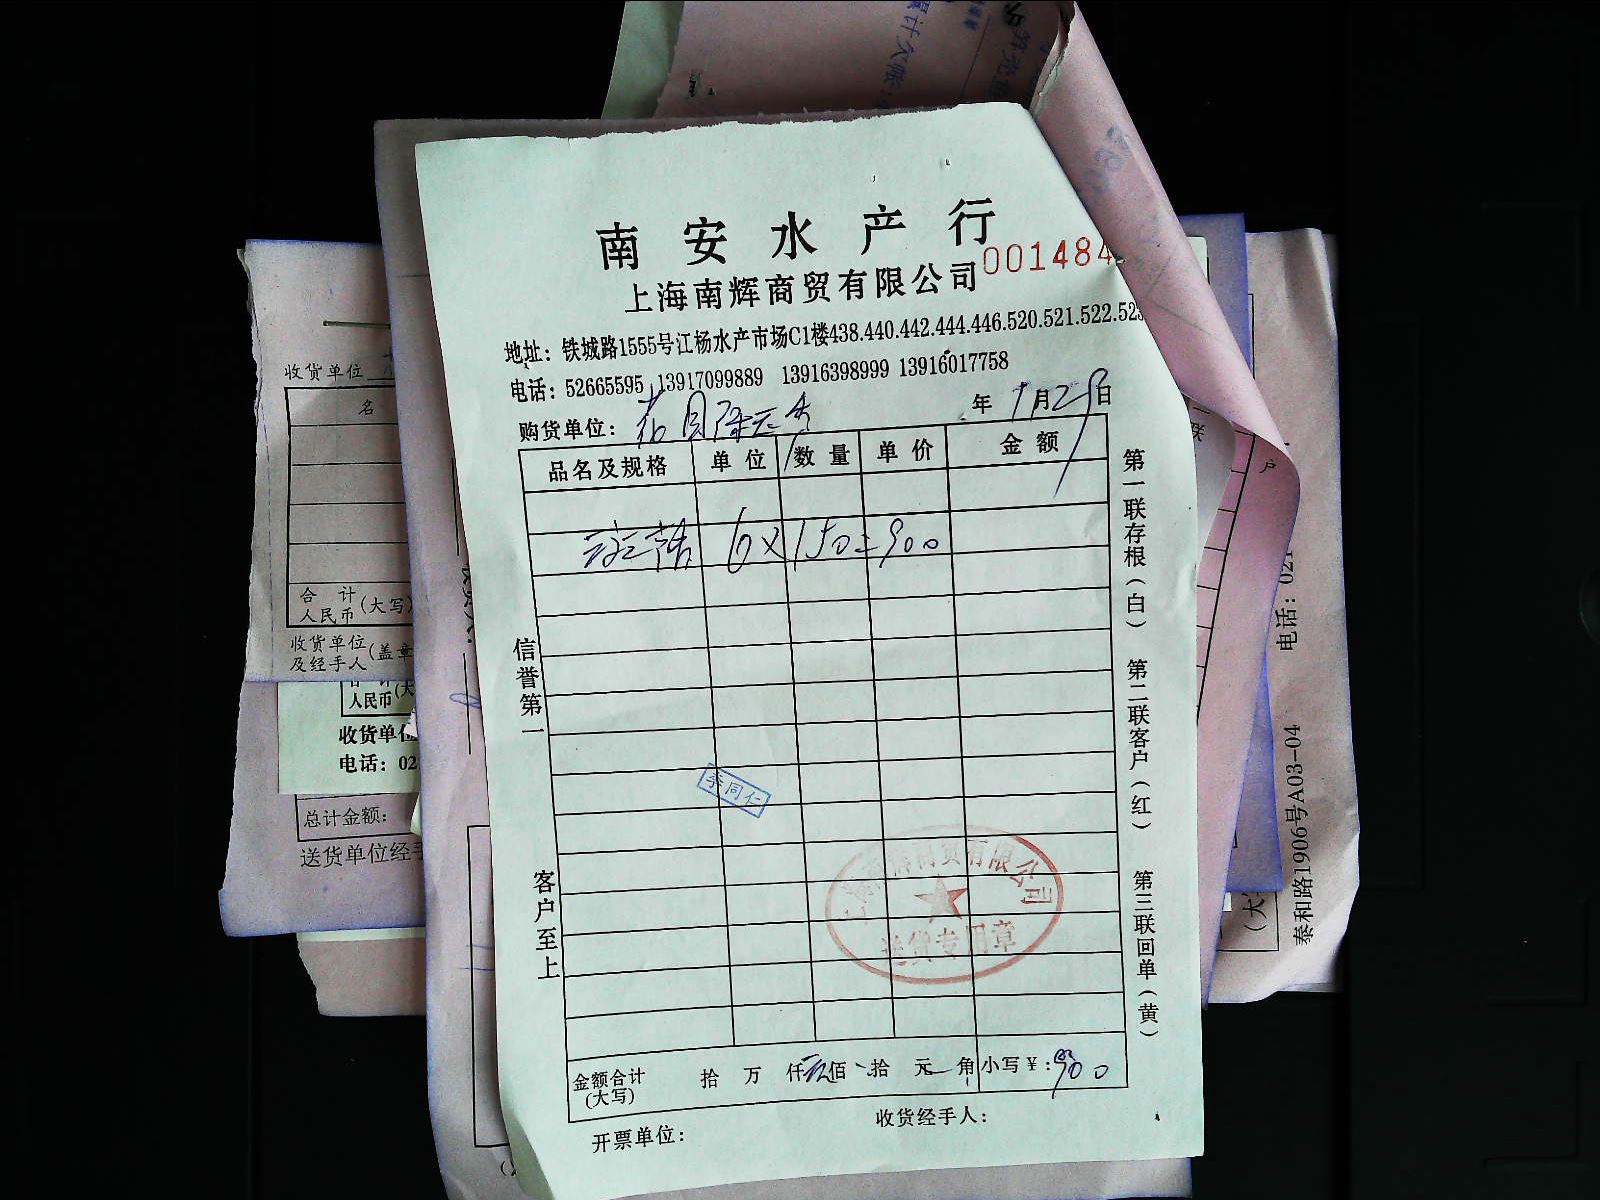 南安水产行
上海南辉商贸有限公司
001484
地址：铁城路1555号江杨水产市场C1楼438.440.442.444.446.520.521.522.523
电话：52665595 13917099889 13916398999 13916017758
购货单位： 年 1月29日
品名及规格 单位 数量 单价 金额
6×150=900
信誉第一
客户至上
第一联存根（白） 第二联客户（红） 第三联回单（黄）
李同仁
商贸有限公司
送货专用章
金额合计（大写） 拾 万 仟 佰 拾 元 角 小写￥：900
开票单位： 收货经手人：
收货单位
名
合 计
人民币（大写）
收货单位
及经手人（盖章
人民币（大
收货单位
电话：02
总计金额：
送货单位经手
累计欠账：
电话：021
泰和路1906号A03-04